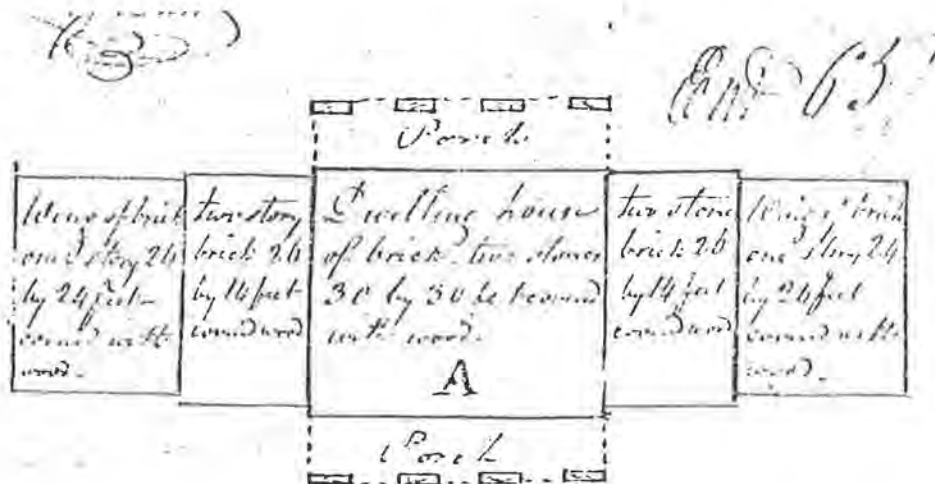 Porch
Wing of brick
one story 24
by 24 feet
covered with
wood.
two story
brick 26
by 14 feet
covered wood
Dwelling house
of brick two stories
30 by 30 feet covered
with wood.
A
two stories
brick 26
by 14 feet
covered wood
Wing of brick
one story 24
by 24 feet
covered with
wood.
Porch